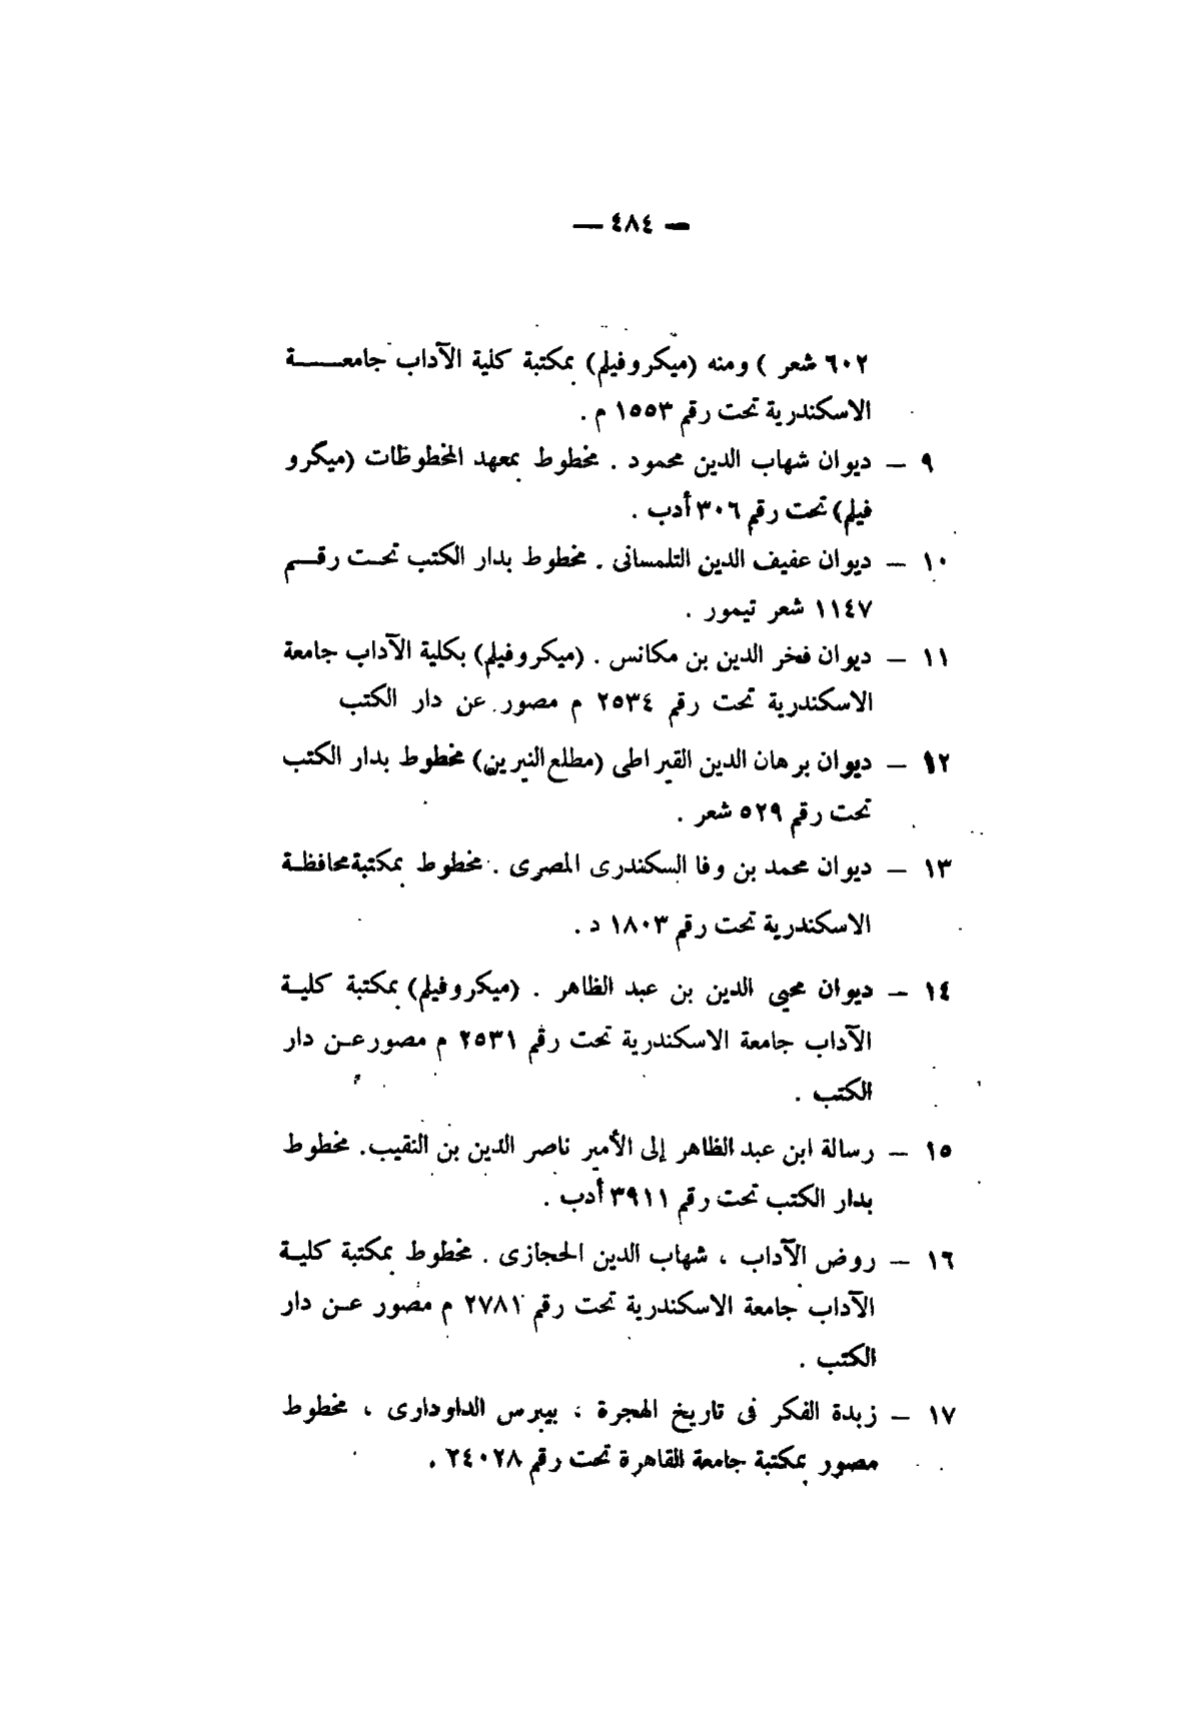 — ٤٨٤ —
٦٠٢ شعر ) ومنه (ميكروفيلم) بمكتبة كلية الآداب جامعـــــة
الاسكندرية تحت رقم ١٥٥٣ م .
٩ — ديوان شهاب الدين محمود . مخطوط بمعهد المخطوظات (ميگرو
فيلم) تحت رقم ٣٠٦ أدب .
١٠ — ديوان عفيف الدين التلمسانى . مخطوط بدار الكتب تحـت رقـــم
١١٤٧ شعر تيمور .
١١ — ديوان فخر الدين بن مكانس . (ميكروفيلم) بكلية الآداب جامعة
الاسكندرية تحت رقم ٢٥٣٤ م مصور عن دار الكتب
١٢ — ديوان برهان الدين القيراطى (مطلع النيرين) مخطوط بدار الكتب
تحت رقم ٥٢٩ شعر .
١٣ — ديوان محمد بن وفا السكندرى المصرى . مخطوط بمكتبة محافظـة
الاسكندرية تحت رقم ١٨٠٣ د .
١٤ — ديوان محيى الدين بن عبد الظاهر . (ميكروفيلم) بمكتبة كليـة
الآداب جامعة الاسكندرية تحت رقم ٢٥٣١ م مصور عـن دار
الكتب .
١٥ — رسالة ابن عبد الظاهر إلى الأمير ناصر الدين بن النقيب . مخطوط
بدار الكتب تحت رقم ٣٩١١ أدب .
١٦ — روض الآداب ، شهاب الدين الحجازى . مخطوط بمكتبة كليـة
الآداب جامعة الاسكندرية تحت رقم ٢٧٨١ م مصور عـن دار
الكتب .
١٧ — زبدة الفكر فى تاريخ الهجرة ، بيبرس الداودارى ، مخطوط
مصور بمكتبة جامعة القاهرة تحت رقم ٢٤٠٢٨ .